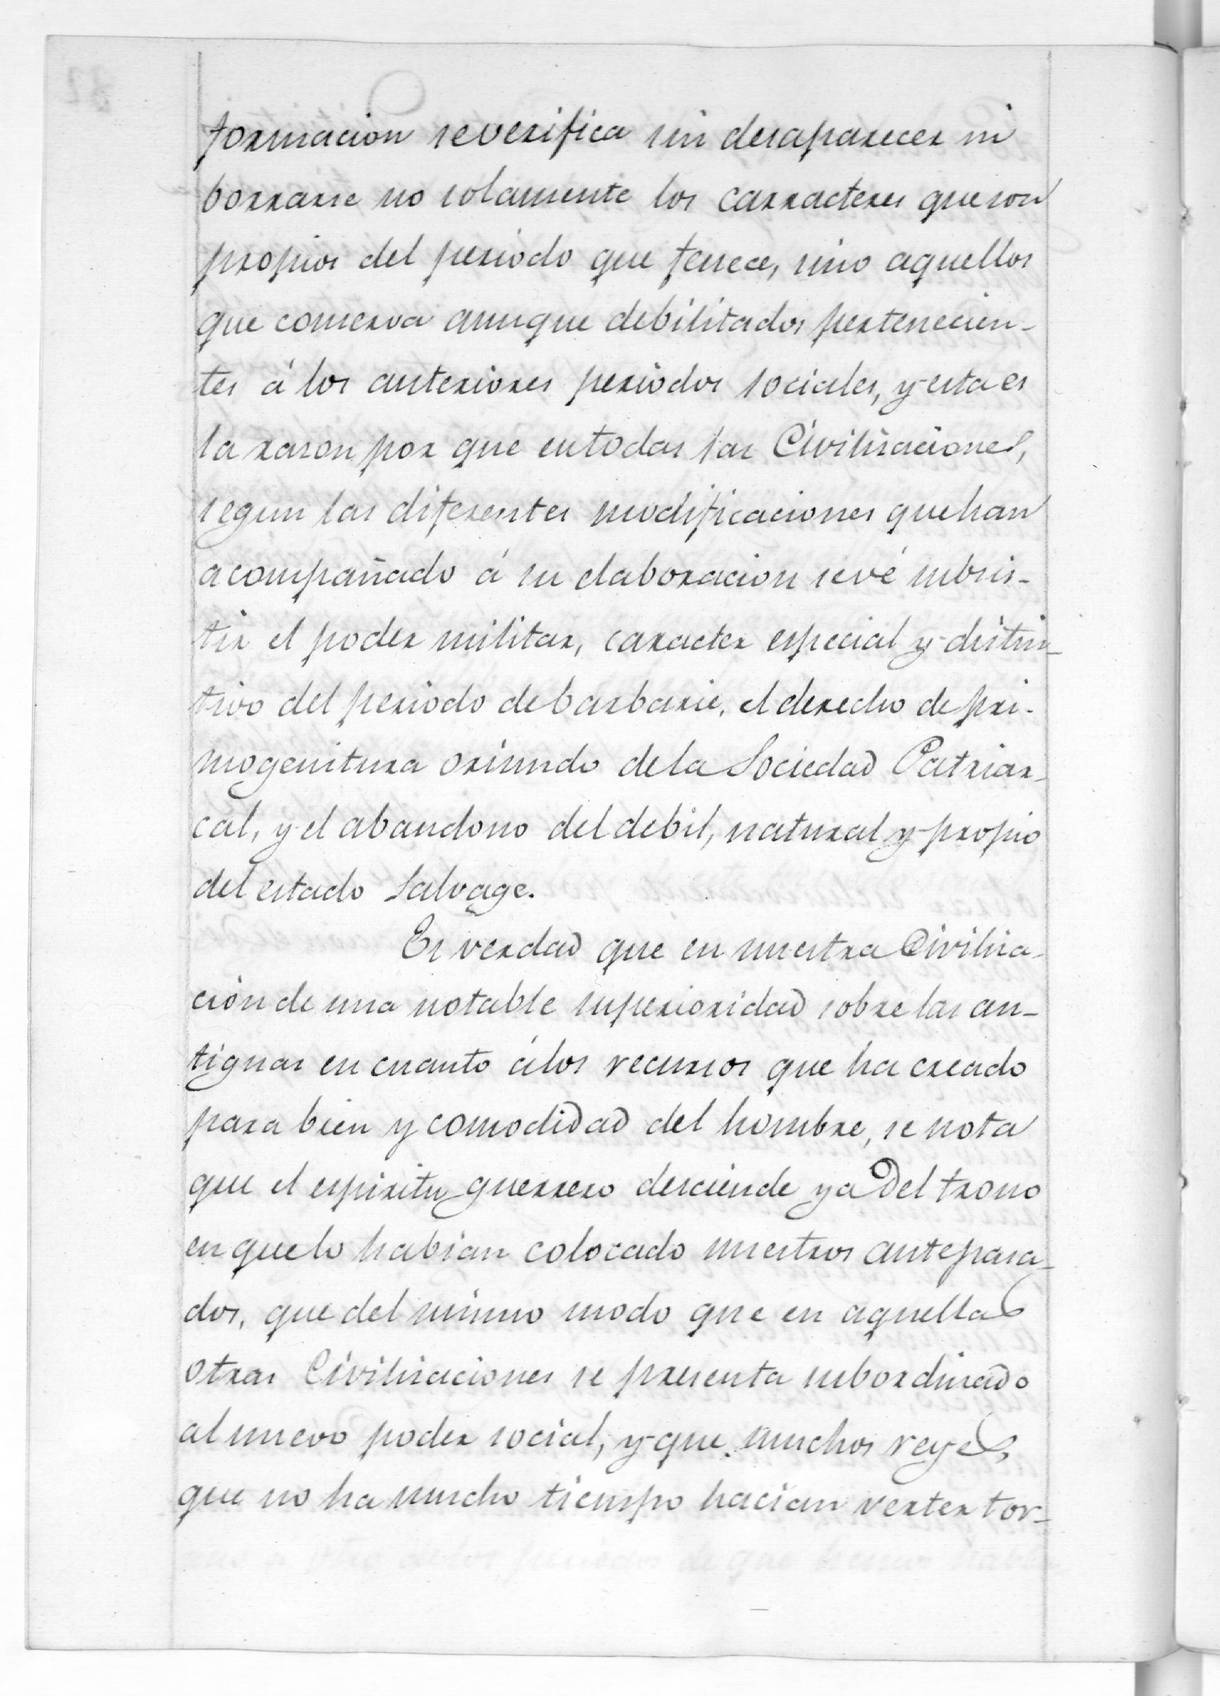 formacion se verifica sin desaparecer ni
borrarse no solamente los carracteres que son
propios del periodo que fenece, sino aquellos
que conserva aunque debilitados pertenecien-
tes á los anteriores periodos sociales, y esta es
la rason por que en todas las Civilisaciones,
segun las diferentes modificaciones que han
acompañado á su elaboracion se vé subsis-
tir el poder militar, caracter especial y distin-
tivo del periodo de barbarie, el derecho de pri-
mogenitura oriundo de la Sociedad Patriar-
cal, y el abandono del debil, natural y propio
del estado Salvage.
Es verdad que en nuestra Civilisa-
ción de una notable superioridad sobre las an-
tiguas en cuanto á los recursos que ha creado
para bien y comodidad del hombre, se nota
que el espiritu guerrero desciende ya del trono
en que lo habian colocado nuestros antepasa-
dos, que del mismo modo que en aquellas
otras Civilisaciones se presenta subordinado
al nuevo poder social, y que muchos reyes,
que no ha mucho tiempo hacian verter tor-